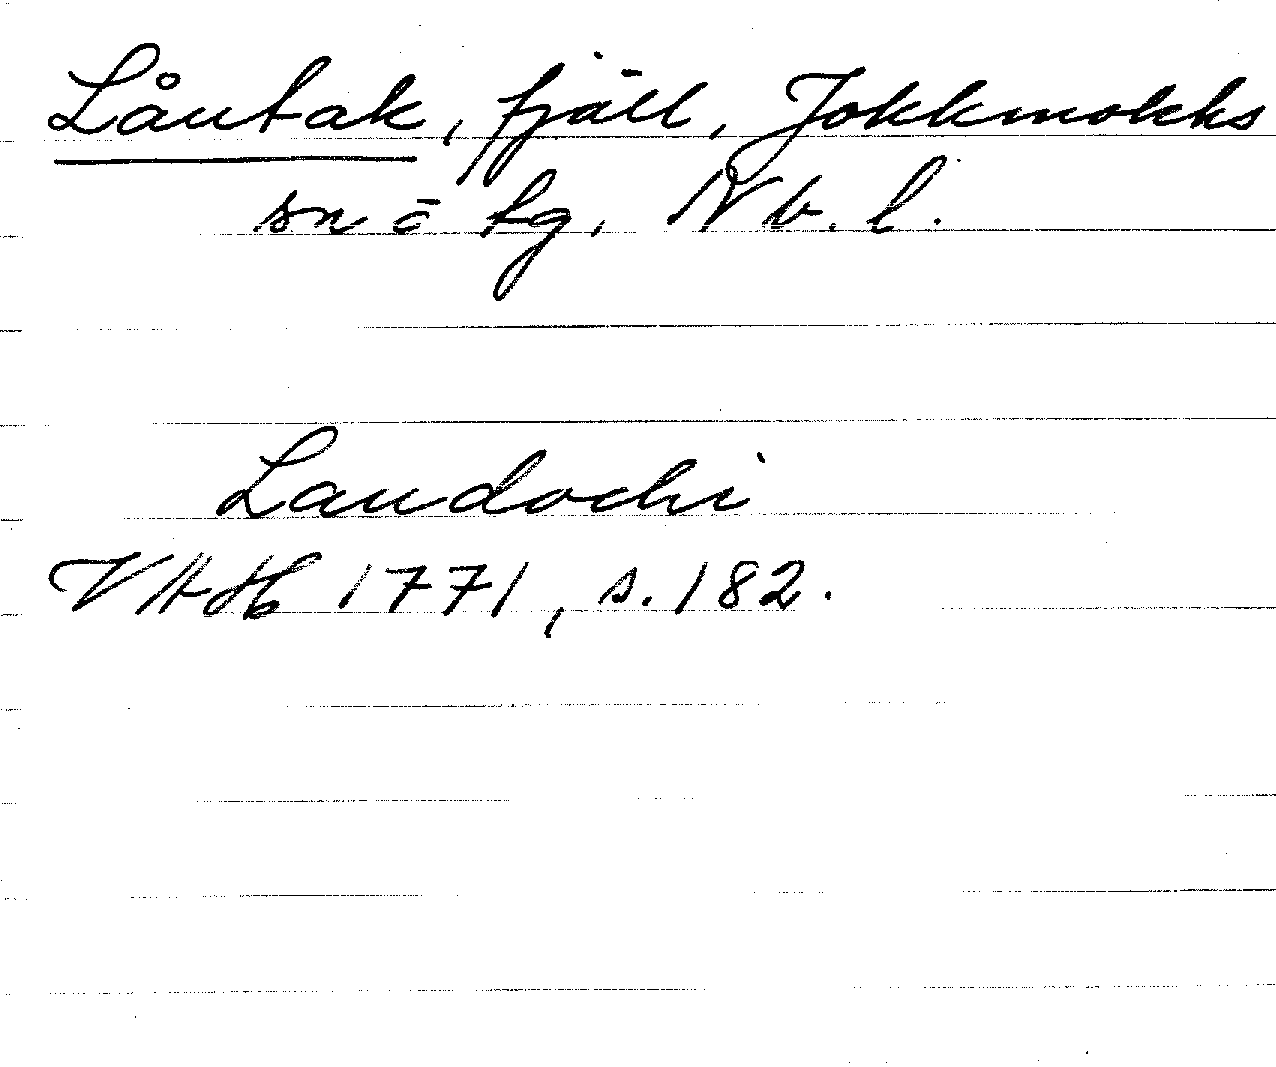 Låutak, fjäll, Jokkmokks
sn o tg, Nb. l.
Laudochi
VAH 1771, s. 182.